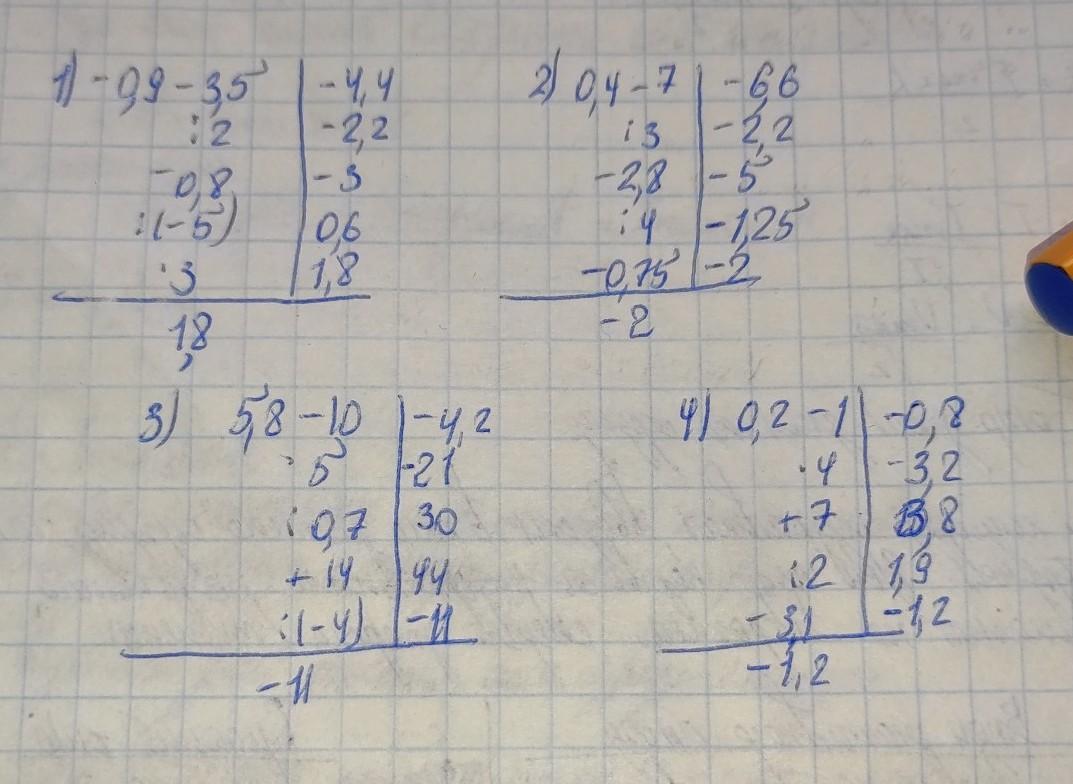 1) -0,9 - 3,5 | -4,4
:2 | -2,2
-0,8 | -3
:(-5) | 0,6
·3 | 1,8
1,8
2) 0,4 - 7 | -6,6
:3 | -2,2
-2,8 | -5
:4 | -1,25
-0,75 | -2
-2
3) 5,8 - 10 | -4,2
·5 | -21
:0,7 | 30
+ 14 | 44
:(-4) | -11
-11
4) 0,2 - 1 | -0,8
·4 | -3,2
+ 7 | 3,8
:2 | 1,9
- 3,1 | -1,2
-1,2